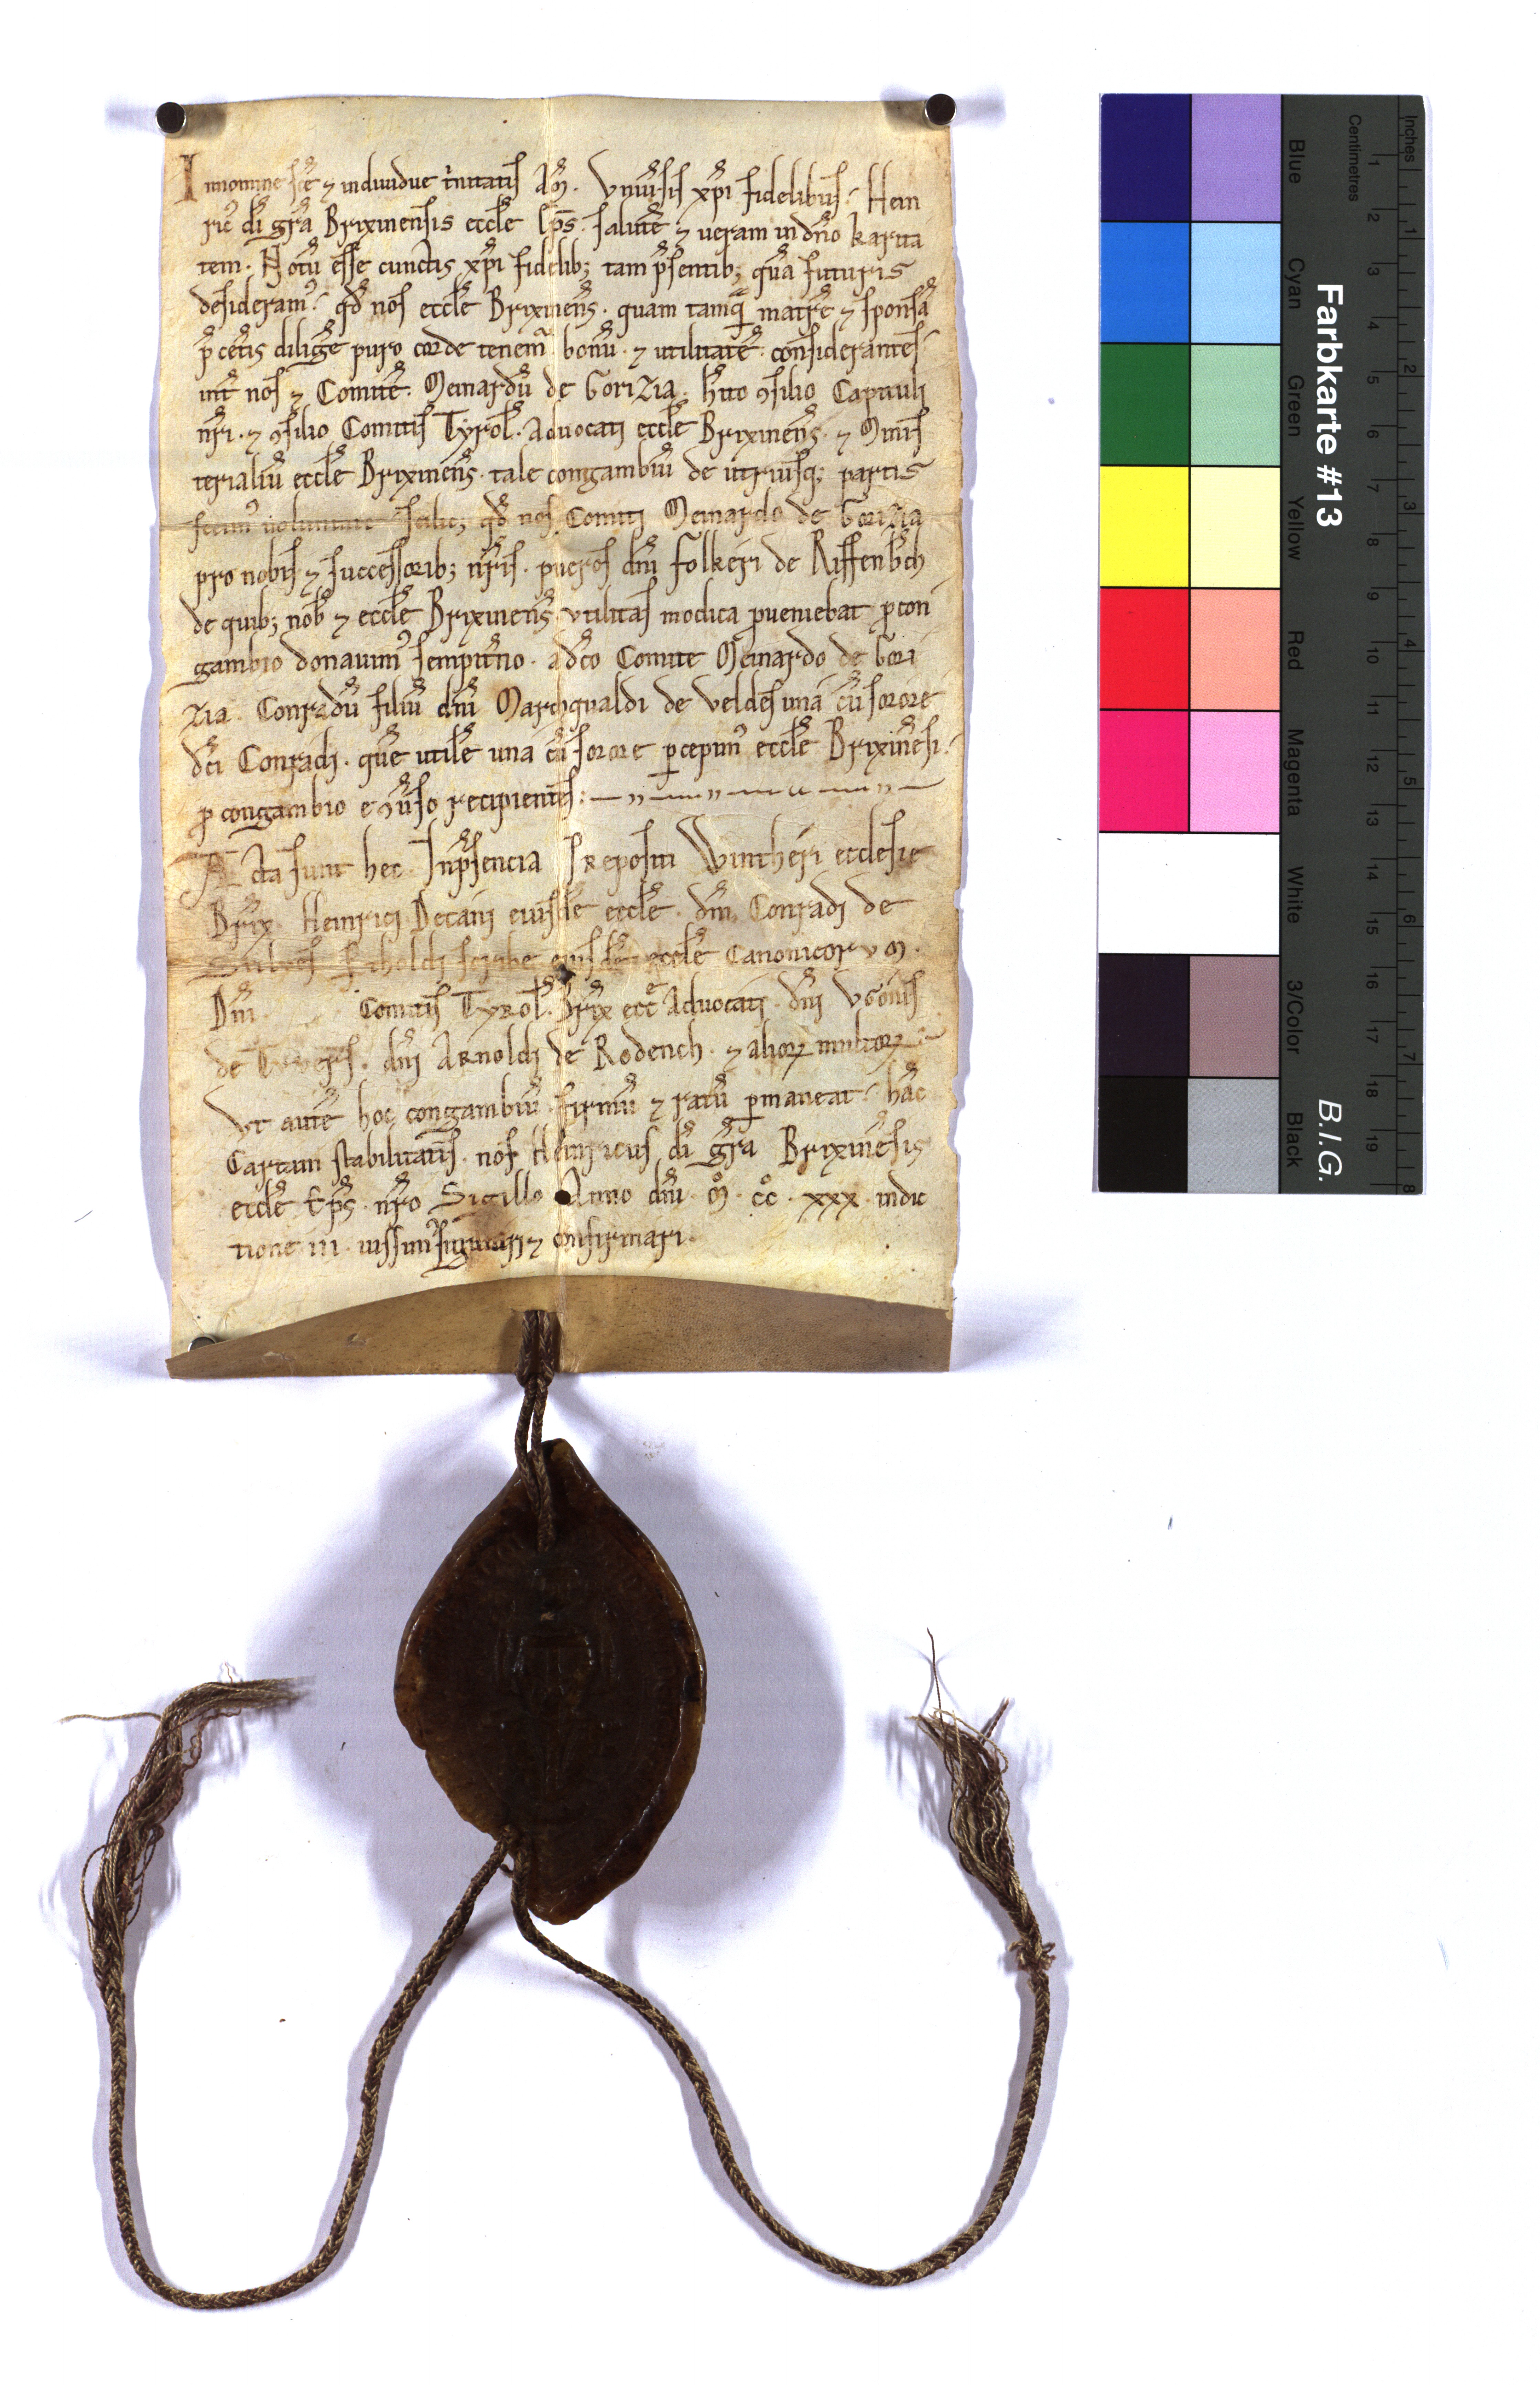 In nomine sc̄e ⁊ individue t̓nitatis Am̄. Vniu̓sis xp̄i fidelibus. Hein
ric̓ di gr̄a Brixinensis eccłe ep̄s. salutē ⁊ ueram in dn̄o karita
tem. Notū esse cunctis xp̄i fidelib; tam p̄sentib; quā futuris
desideram̓. qd̄ nos eccłe Brixinens̄. quam tamq̄ matrē ⁊ sponsā
p̄ cet̓is diligē puro corde tenem̓ bonū ⁊ utilitatē considerantes
int̓ nos ⁊ Comitē Meinardū de Gorizia. h̓ito ꝯsilio Capituli
nr̄i. ⁊ ꝯsilio Comitis Tyrol̄. Aduocati eccłe Brixinens̄. ⁊ Minis
terialiū eccłe Brixinens̄. tale congambiū de utriusq; partis
fecim̓ uoluntate scilic; qd̄ nos Comiti Meinardo de Gorizia
pro nobis ⁊ successorib; nr̄is. pueros dn̄i Folkeri de Riffenb̓ch
de quib; nob̄ ⁊ eccłe Brixinens̄ utilitas modica ꝓueniebat ꝓ con
gambio donauim̓ sempit̓no. a dc̄o Comite Meinardo de Gori
zia. Conradū filiū dn̄i Marchqualdi de Veldes unā cū sorore
dc̄i Conradi. quē utilē una cū sorore ꝑcepim̓ eccłe Brixinēsi.
ꝓ congambio e ꝯu̓so recipientes:
Acta sunt hec In p̄sencia Prepositi Wintheri ecclesie
Brix̄. Heinrici Decani eiusdē eccłe. dn̄i Conradi de
scribe eiusdē eccłe Canonicorum.
Dn̄i Comitis Tyrol̄. Brix̄ ecc̄e Aduocati. dn̄i Vgonis
de Tuuers̄. dn̄i Arnoldi de Rodench. ⁊ alioꝝ multoꝝ.
Vt autē hoc congambiū firmū ⁊ ratū ꝑmaneat. hāc
Cartam stabilitatis. nos Heinricus di gr̄a Brixinēsis
eccłe Ep̄s. nr̄o Sigillo Anno dn̄i. m̊. cc̊. xxx. indic
tione iii. iussim̓ signari ⁊ confirmari.
Farbkarte #13
B.I.G.
Inches
Centimetres
1 2 3 4 5 6 7 8 9 10 11 12 13 14 15 16 17 18 19
1 2 3 4 5 6 7 8
Blue
Cyan
Green
Yellow
Red
Magenta
White
3/Color
Black